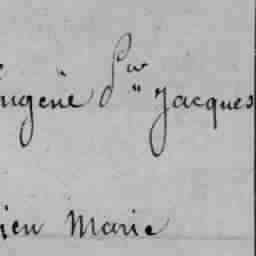 Eugène d'' Jacques
ien Marie